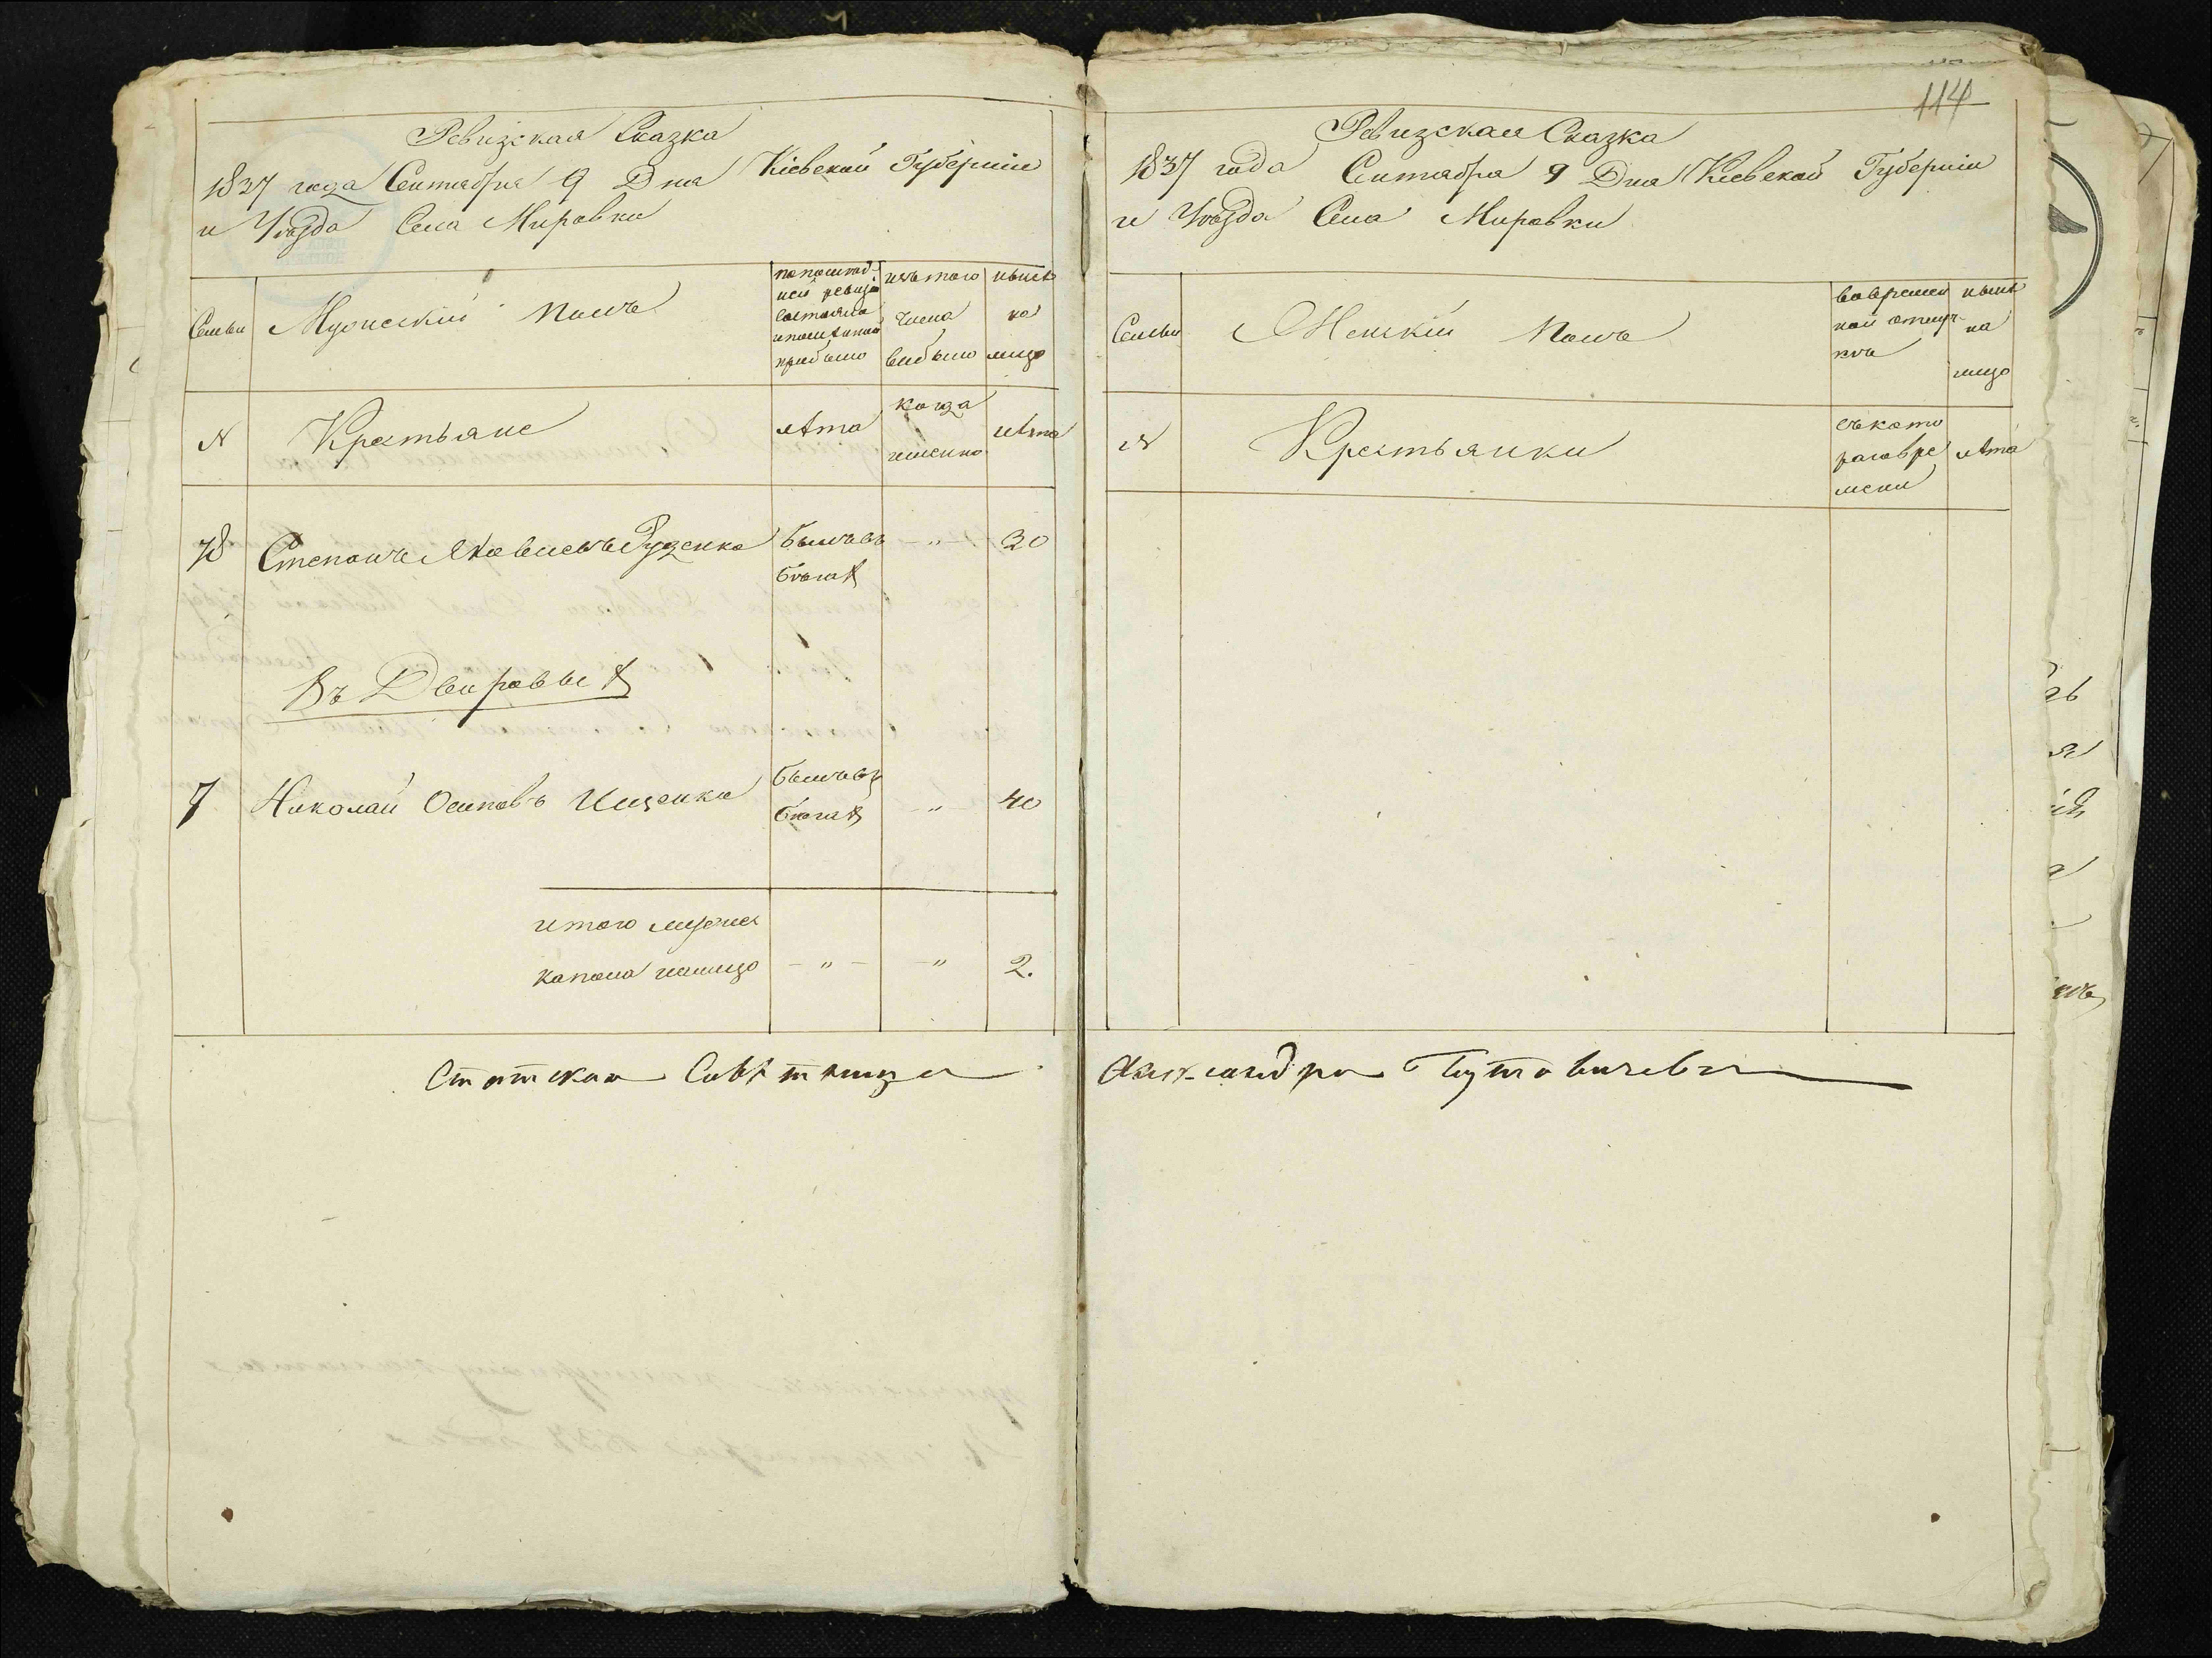 Ревизская Сказка
1837 года Сентабря 9 Дня Кіевской Губерніи
и Уѣзда Села Мировки
Семьи
Мужескій полъ
по послед-
ней ревизіи
состояло
и после оной
прибыло
изъ того
числа
выбыло
ныне
на
лицо
N
Крестьяне
лѣта
когда
именно
лѣта
78
Степанъ Яковлевъ Руденко
былъ въ
бѣгахъ
— " —
30
Въ Дворовыхъ
7
Николай Осиповъ Ищенко
былъ въ
бѣгахъ
— " —
40
итого мужес
ка пола налицо
— " —
— "
2.
Статская Совѣтница
114
Ревизская Сказка
1837 года Сентабря 9 Дня Кіевской Губерніи
и Уѣзда Села Мировки
Семьи
Женскій полъ
во времен
ной отлуч-
кѣ
ныне
на
лицо
N
Крестьянки
съ кото
раго вре
мени
лѣта
Александра Гутовичева